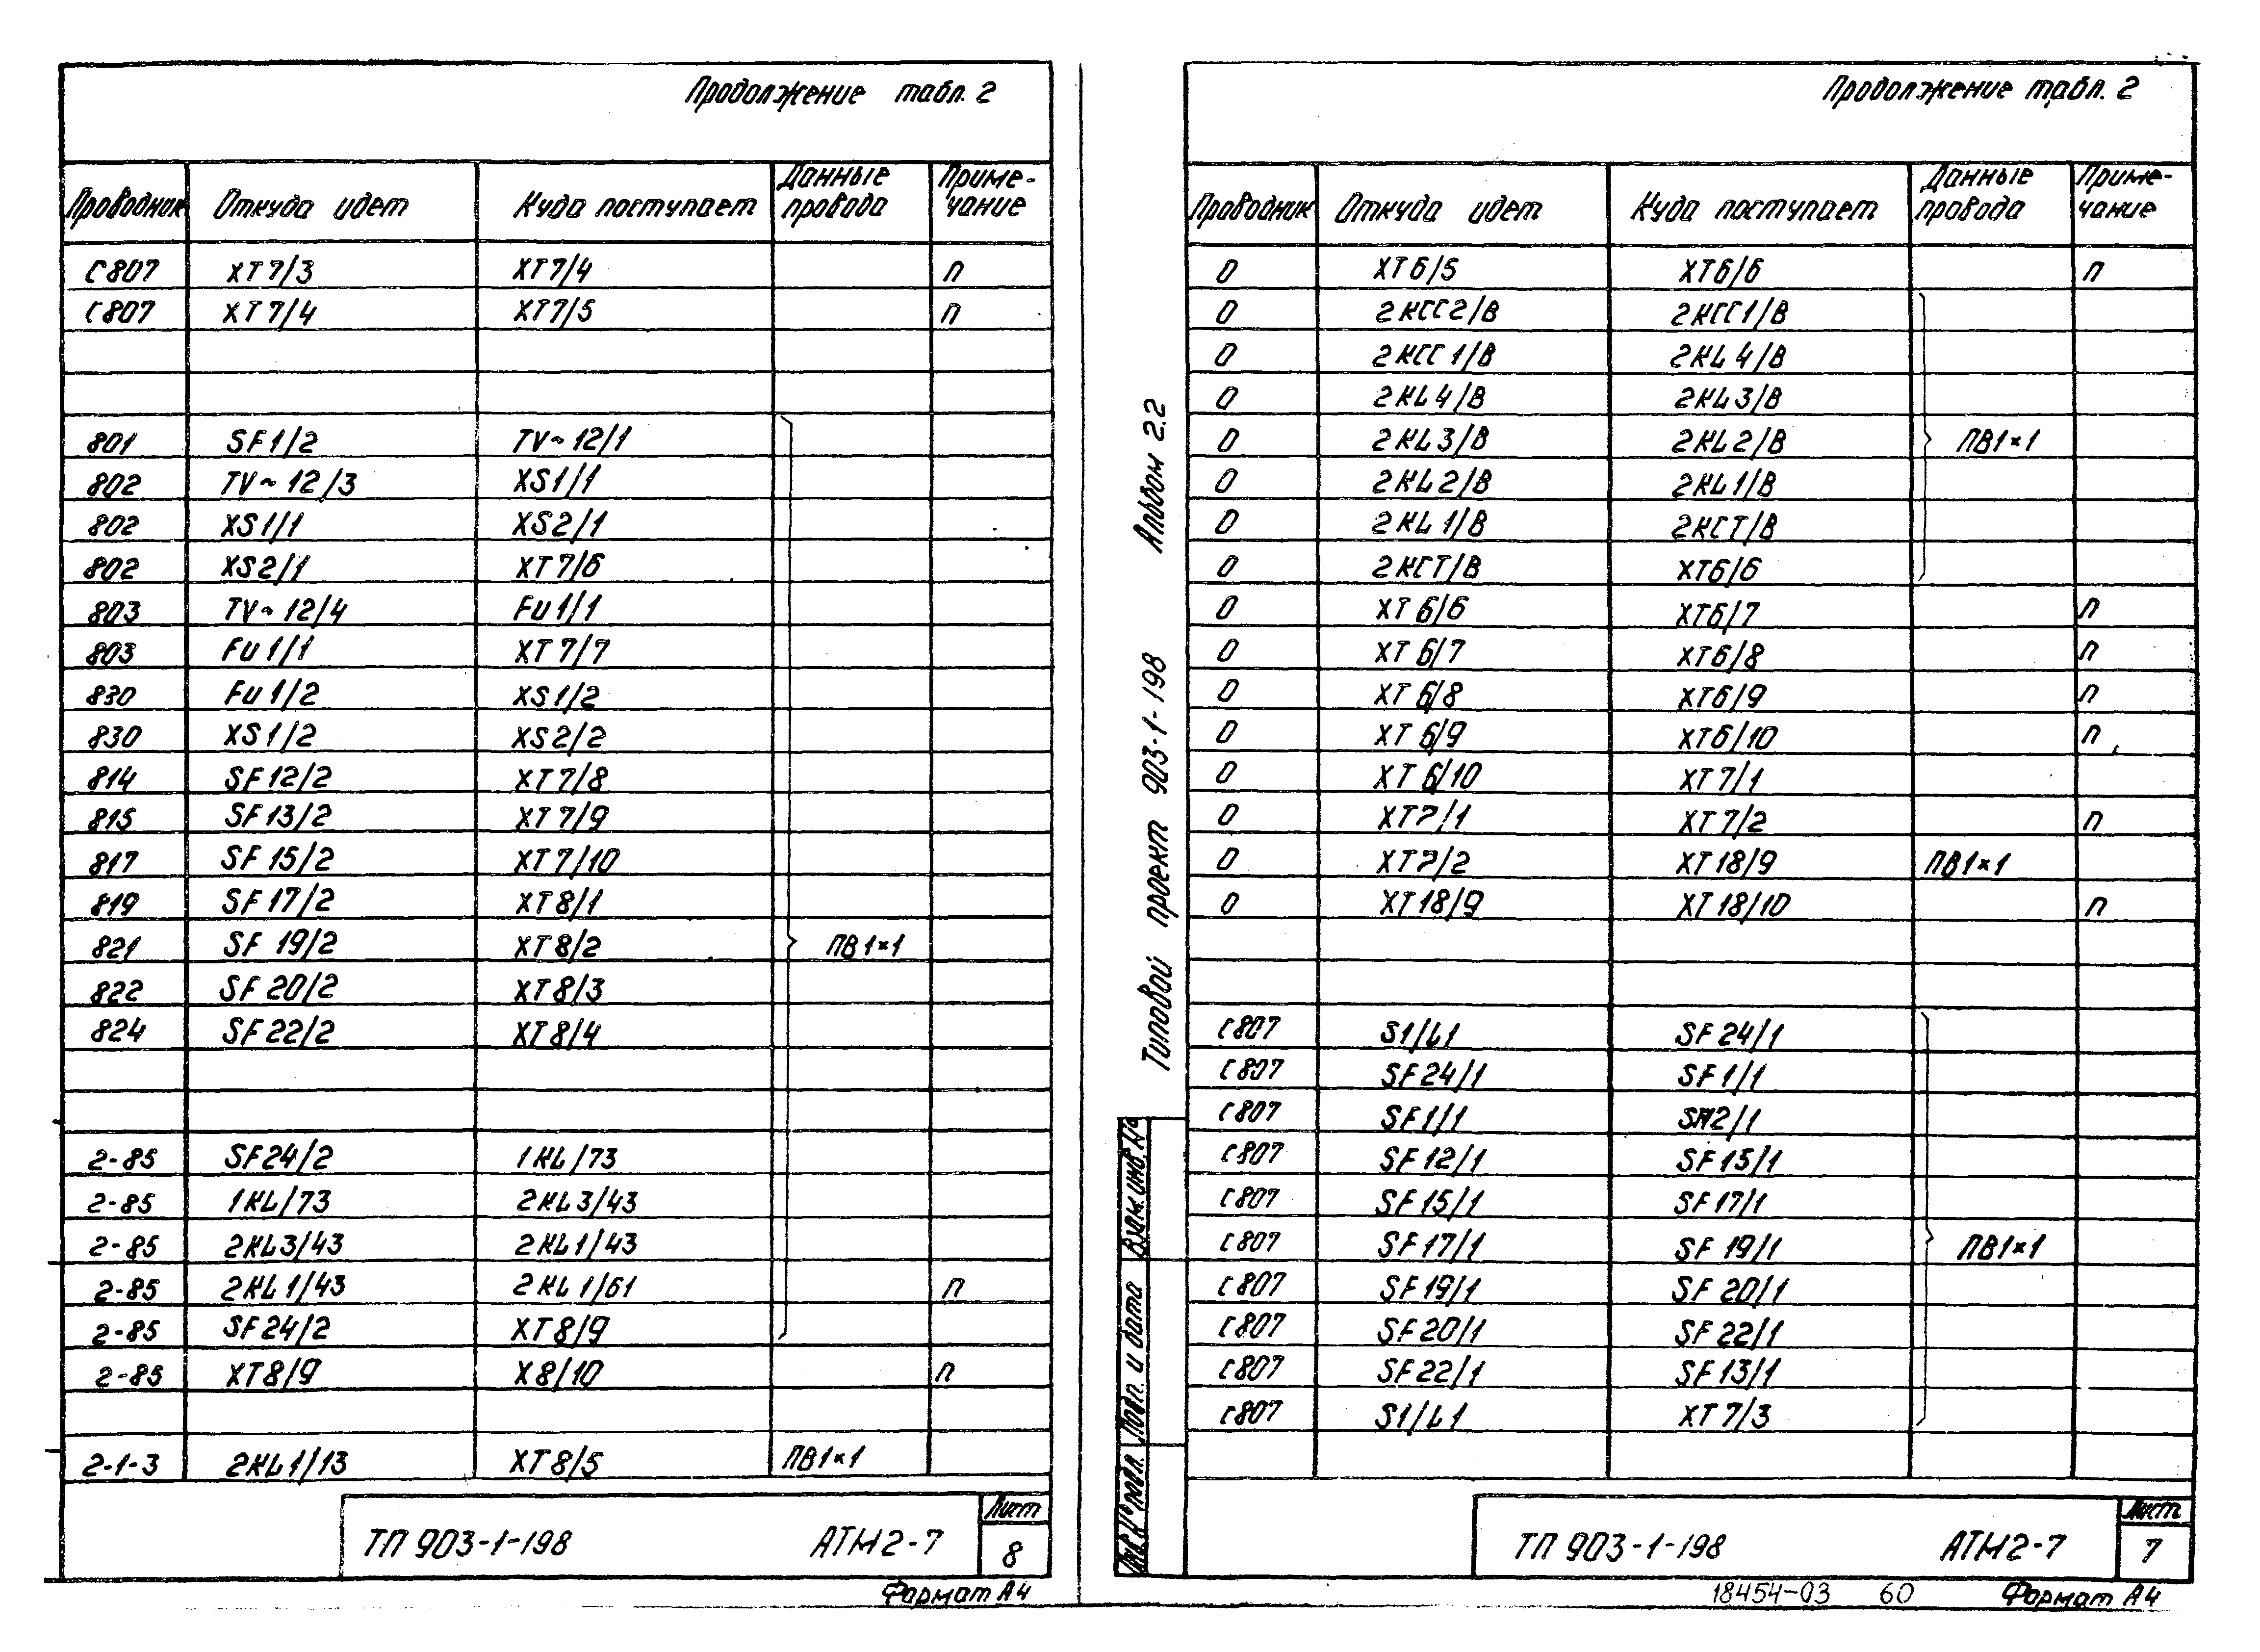 Продолжение табл. 2
Проводник Откуда идет Куда поступает Данные провода Приме-чание
С807 XT7/3 XT7/4 п
С807 XT7/4 XT7/5 п
801 SF1/2 TV~12/1
802 TV~12/3 XS1/1
802 XS1/1 XS2/1
802 XS2/1 XT7/6
803 TV~12/4 FU1/1
803 FU1/1 XT7/7
830 FU1/2 XS1/2
830 XS1/2 XS2/2
814 SF12/2 XT7/8
815 SF13/2 XT7/9
817 SF15/2 XT7/10
819 SF17/2 XT8/1
821 SF19/2 XT8/2 ПВ1×1
822 SF20/2 XT8/3
824 SF22/2 XT8/4
2-85 SF24/2 1KL/73
2-85 1KL/73 2KL3/43
2-85 2KL3/43 2KL1/43
2-85 2KL1/43 2KL1/61 п
2-85 SF24/2 XT8/9
2-85 XT8/9 X8/10 п
2-1-3 2KL1/13 XT8/5 ПВ1×1
ТП 903-1-198 АТМ2-7 Лист 8
Формат А4
Продолжение табл. 2
Проводник Откуда идет Куда поступает Данные провода Приме-чание
0 XT6/5 XT6/6 п
0 2КСС2/В 2КСС1/В
0 2КСС1/В 2KL4/В
0 2KL4/В 2KL3/В
0 2KL3/В 2KL2/В ПВ1×1
0 2KL2/В 2KL1/В
0 2KL1/В 2КСТ/В
0 2КСТ/В XT6/6
0 XT6/6 XT6/7 п
0 XT6/7 XT6/8 п
0 XT6/8 XT6/9 п
0 XT6/9 XT6/10 п
0 XT6/10 XT7/1
0 XT7/1 XT7/2 п
0 XT7/2 XT18/9 ПВ1×1
0 XT18/9 XT18/10 п
С807 S1/L1 SF24/1
С807 SF24/1 SF1/1
С807 SF1/1 SF12/1
С807 SF12/1 SF15/1
С807 SF15/1 SF17/1
С807 SF17/1 SF19/1 ПВ1×1
С807 SF19/1 SF20/1
С807 SF20/1 SF22/1
С807 SF22/1 SF13/1
С807 S1/L1 XT7/3
ТП 903-1-198 АТМ2-7 Лист 7
18454-03 60 Формат А4
Типовой проект 903-1-198 Альбом 2.2
Инв.№ подл. Подп. и дата Взам.инв.№